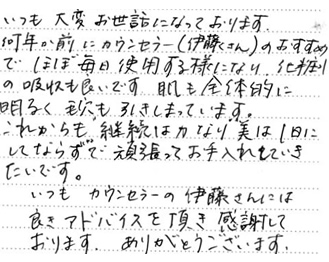 いつも 大変お世話になっております。
何年か前にカウンセラー(伊藤さん)のおすすめ
で ほぼ毎日使用する様になり、化粧水
の吸収も良いです 肌も全体的に
明るく 毛穴も引きしまっています。
これからも 継続は力なり 美は1日に
してならずで 頑張ってお手入れをしていき
たいです。
いつも カウンセラーの伊藤さんには
良きアドバイスを頂き 感謝して
おります。 ありがとうございます。